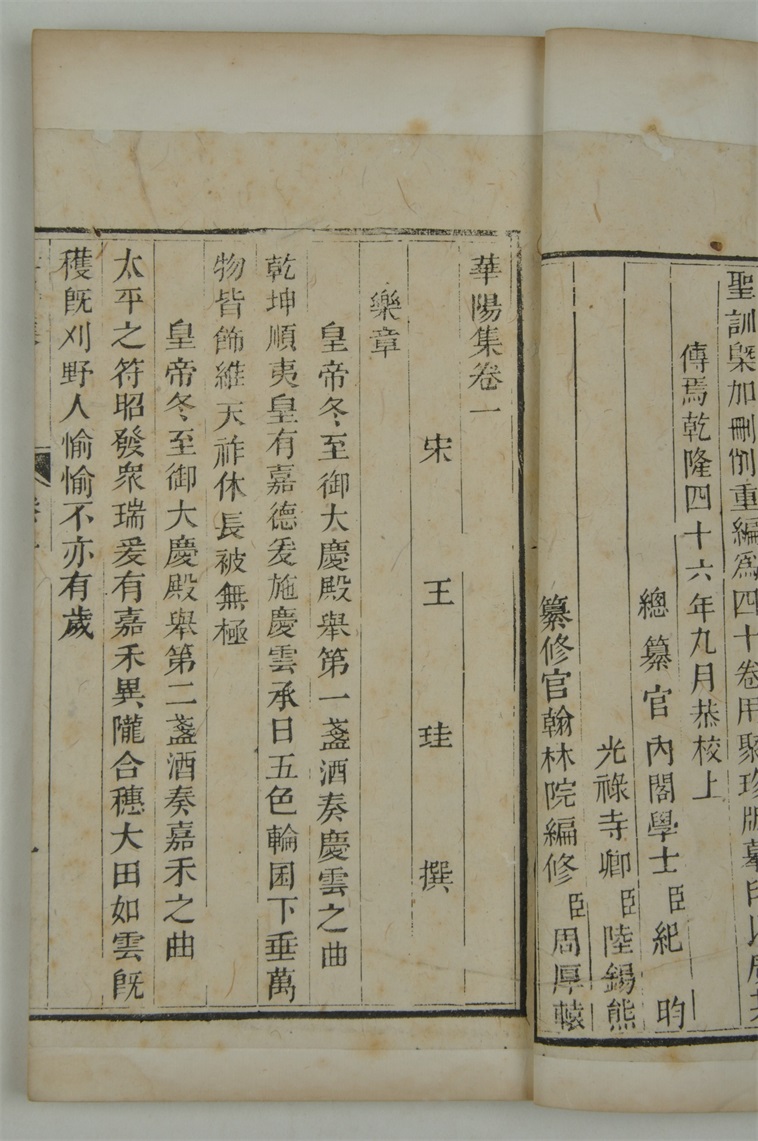 聖訓槩加刪削重編爲四十卷用聚珍版摹印以廣其
傳焉乾隆四十六年九月恭校上
總纂官內閣學士臣紀昀
光祿寺卿臣陸錫熊
纂修官翰林院編修臣周厚轅
華陽集卷一
宋王珪撰
樂章
皇帝冬至御大慶殿舉第一盞酒奏慶雲之曲
乾坤順夷皇有嘉德爰施慶雲承日五色輪囷下垂萬
物皆飾維天祚休長被無極
皇帝冬至御大慶殿舉第二盞酒奏嘉禾之曲
太平之符昭發衆瑞爰有嘉禾異隴合穗大田如雲旣
穫旣刈野人愉愉不亦有歲